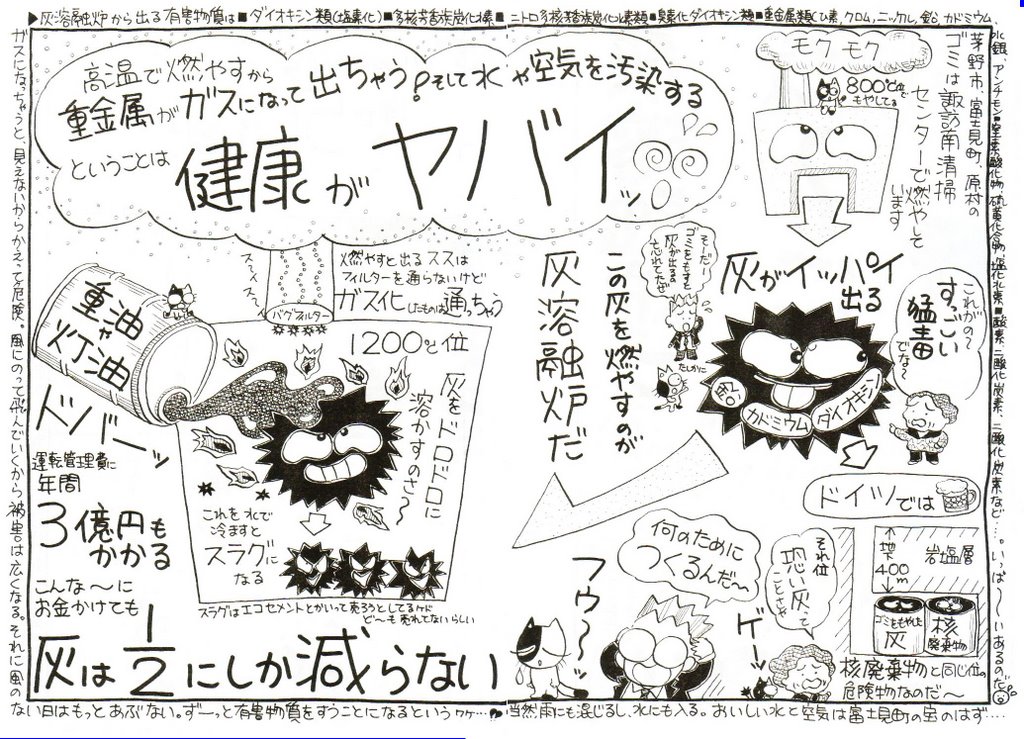 ▶灰溶融炉から出る有害物質は■ダイオキシン類(塩素化)■多核芳香族炭化水素■ニトロ多核芳香族炭化水素類■臭素化ダイオキシン類■重金属類(ひ素,クロム,ニッケル,鉛,カドミウム,
水銀,アンチモン■窒素酸化物,硫黄化合物,塩化水素■酸素,二酸化炭素,二酸化炭素など…。いっぱ〜〜いあるのだ
茅野市、富士見町、原村の
ゴミは諏訪南清掃
センターで燃やして
います
モクモク
800℃位で
もやしてる
灰がイッパイ
出る
これがの〜
すっごい
猛毒
でな〜
鉛
カドミウム
ダイオキシン
そーだー!
ゴミをもすと
灰が出るの
忘れてたぜ
たしかに
この灰を燃やすのが
灰溶融炉だ
高温で燃やすから
重金属がガスになって出ちゃう!そして水や空気を汚染する
ということは
健康がヤバイッ
燃やすと出るススは
フィルターを通らないけど
ガス化したものは通っちゃう
ス〜イス〜イ
バグフィルター
1200℃位
重油
や
灯油
ドバーッ
灰をドロドロに
溶かすのさ〜
これを水で
冷ますと
スラグに
なる
スラグはエコセメントとかいって売ろうとしてるケド
ど〜も売れてないらしい
運転管理費に
年間
3億円も
かかる
こんな〜に
お金かけても
灰は1/2にしか減らない
ドイツでは
地下
400m
岩塩層
ゴミをもやした
灰
核
廃棄物
核廃棄物と同じ位の
危険物なのだ〜
それ位
恐い灰って
ことですじゃ
ゲーッ
何のために
つくるんだ〜
フゥ〜
ガスになっちゃうと、見えないからかえって危険。風にのって飛んでいくから被害は広くなる。それに風の
ない日はもっとあぶない。ず〜っと有害物質をすうことになるというワケ…
当然雨にも混じるし、水にも入る。おいしい水と空気は富士見町の宝のはず‥‥